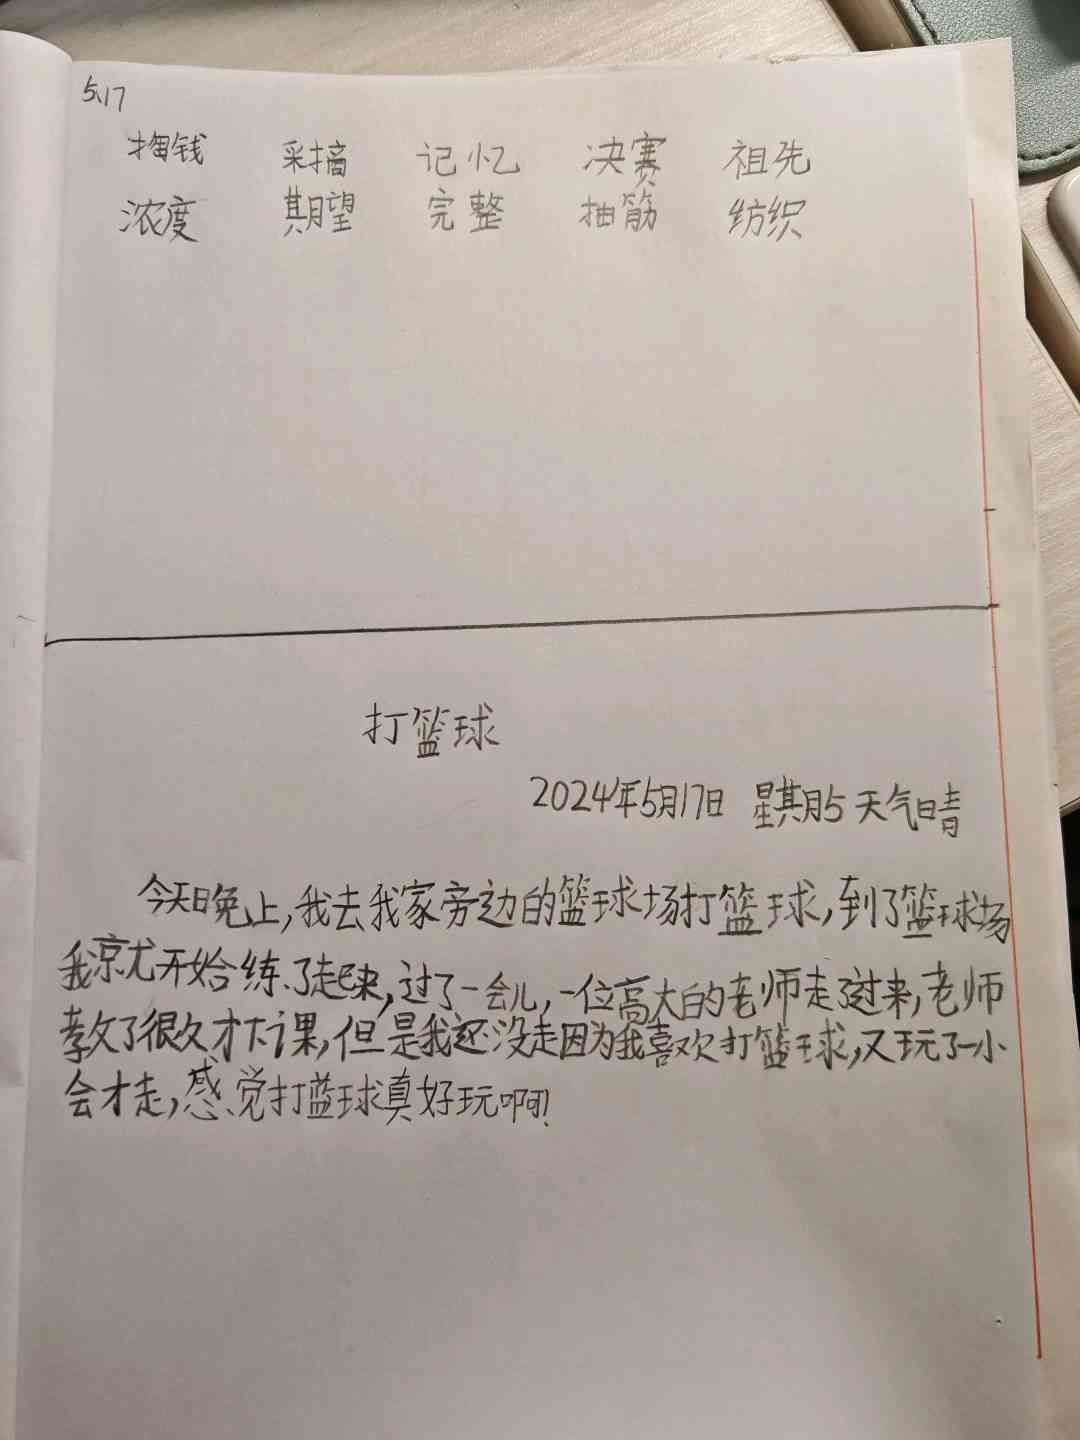 5.17
掏钱 采摘 记忆 决赛 祖先
浓度 期望 完整 抽筋 纺织
打篮球
2024年5月17日 星期5 天气晴
今天晚上,我去我家旁边的篮球场打篮球,到了篮球场
我就开始练了起来,过了一会儿,一位高大的老师走了过来,老师
教了很久才下课,但是我还没走因为我喜欢打篮球,又玩了一小
会才走,感觉打蓝球真好玩啊!